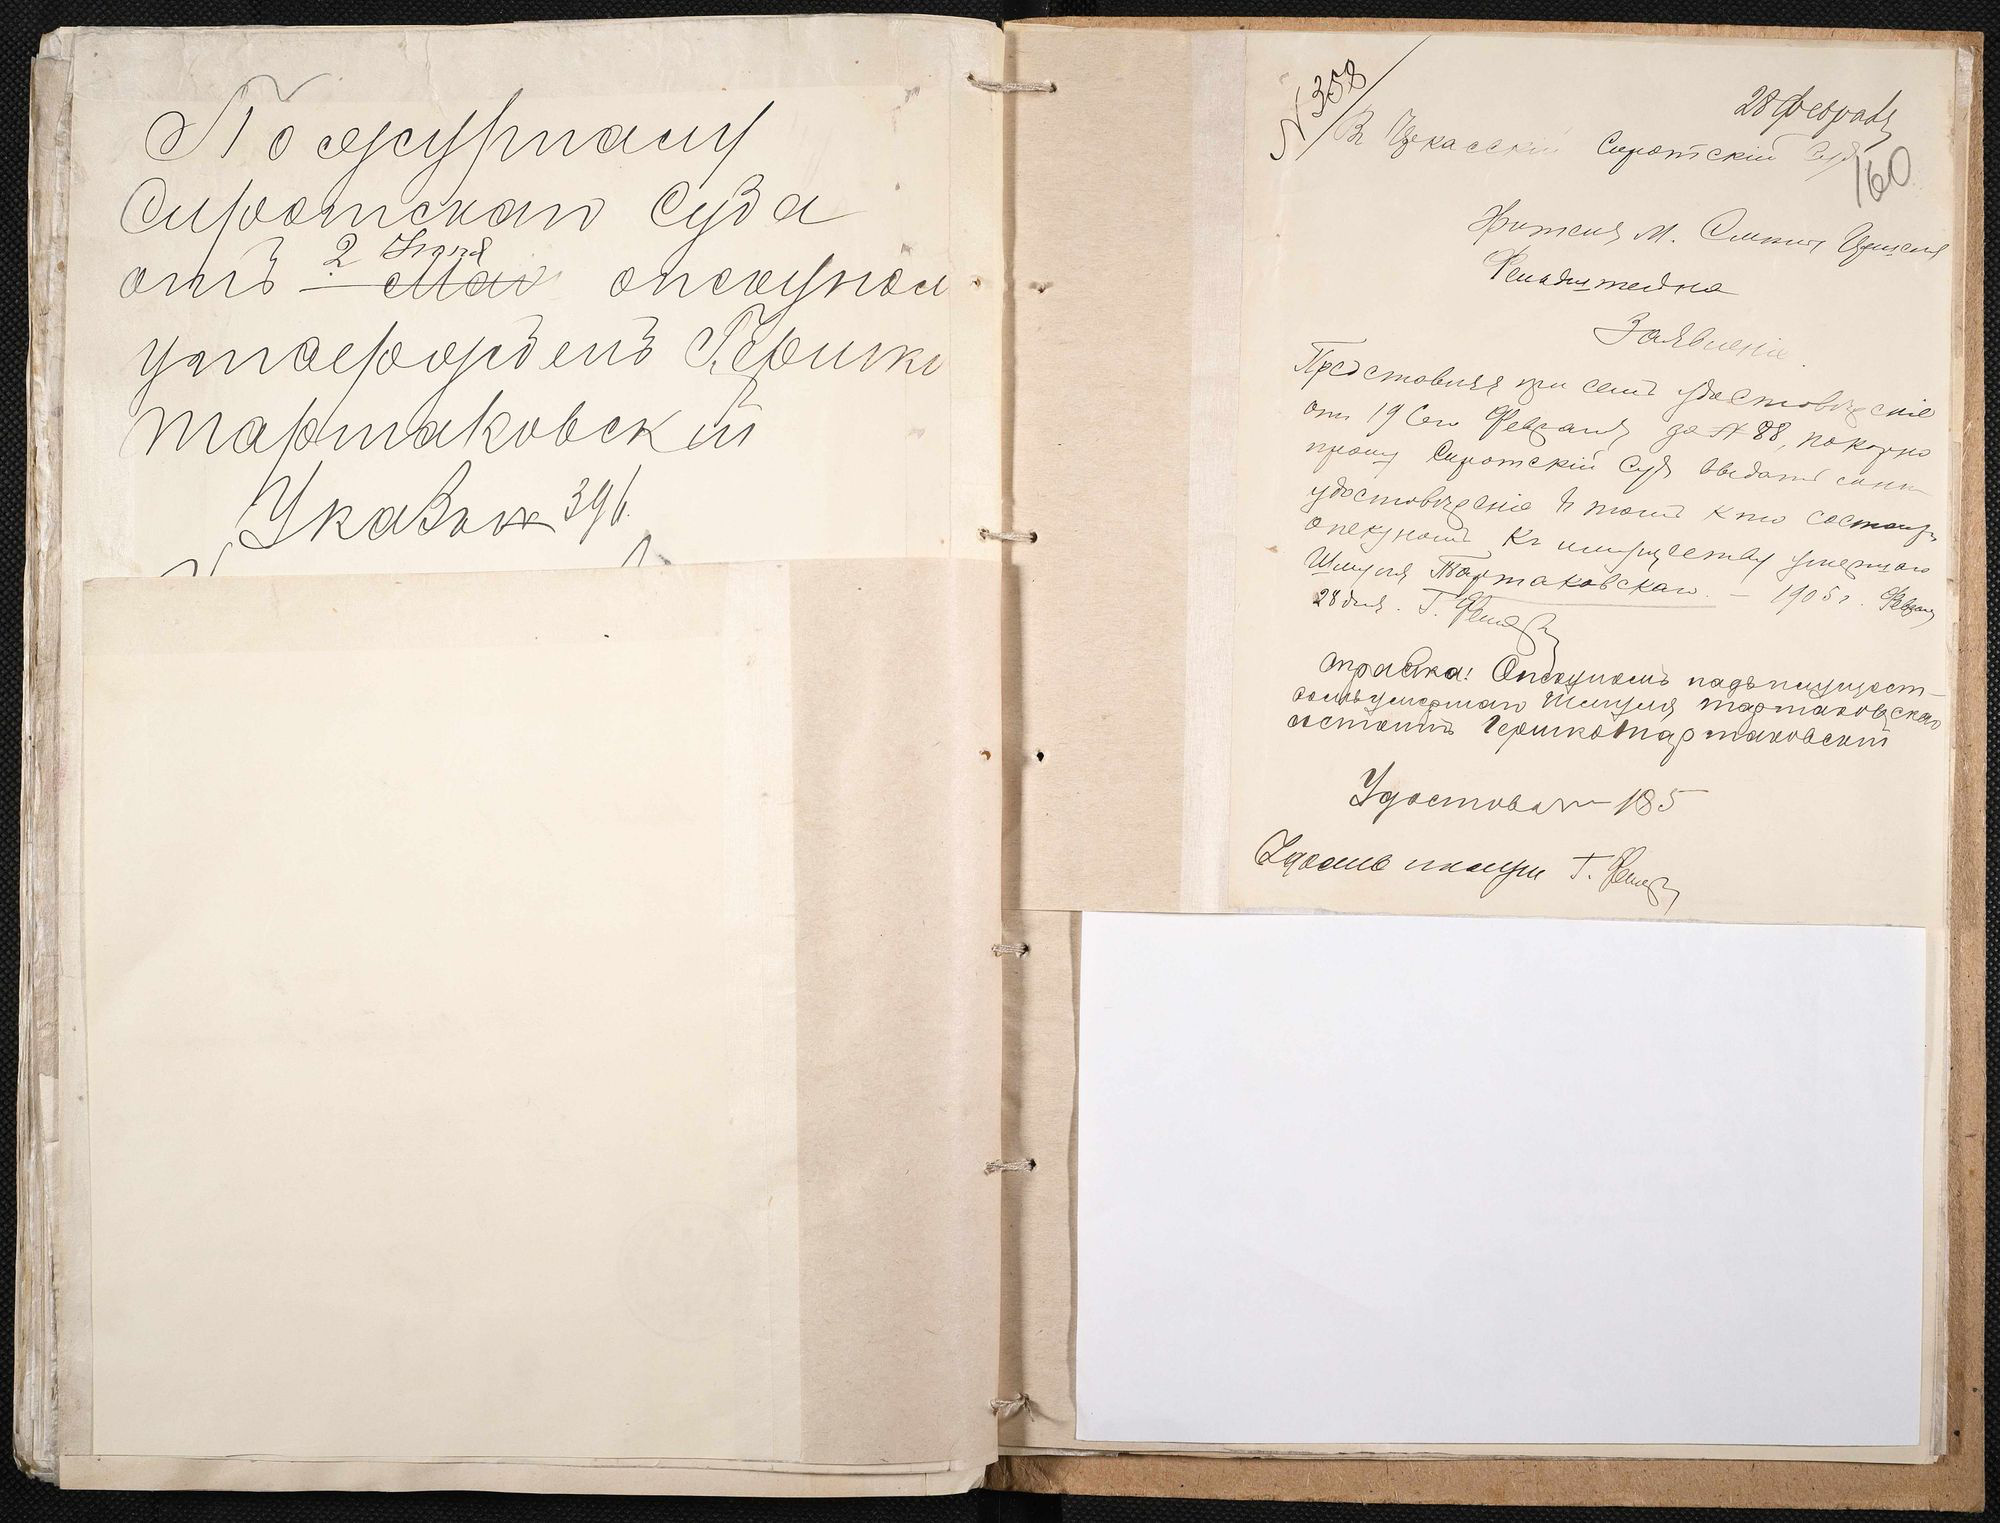 По журналу
Сиротскаго Суда
отъ 2 Іюня опекуномъ
Маія
утвержденъ Гершко
Тартаковскій
Указъ № 396.
№ 358
28 Февраля
160
Въ Черкасскій Сиротскій Судъ
Жителя м. Смѣлы
Фельдштейна
Заявленіе
Предстовляя при семъ удостовѣреніе
отъ 19 сего Февраля за № 88, покорно
прошу Сиротскій Судъ выдать мнѣ
удостовѣреніе въ томъ кто состоитъ
опекуномъ къ имуществу умершаго
Шмуля Тартаковскаго. – 1905 г. Февраля
28 дня. Г. Фельд
Справка: Опекуномъ надъ имущест-
вомъ умершаго Шмуля Тартаковскаго
состоитъ Гершко Тартаковскій
Удостов № 185
Удост. получилъ Г. Фельд